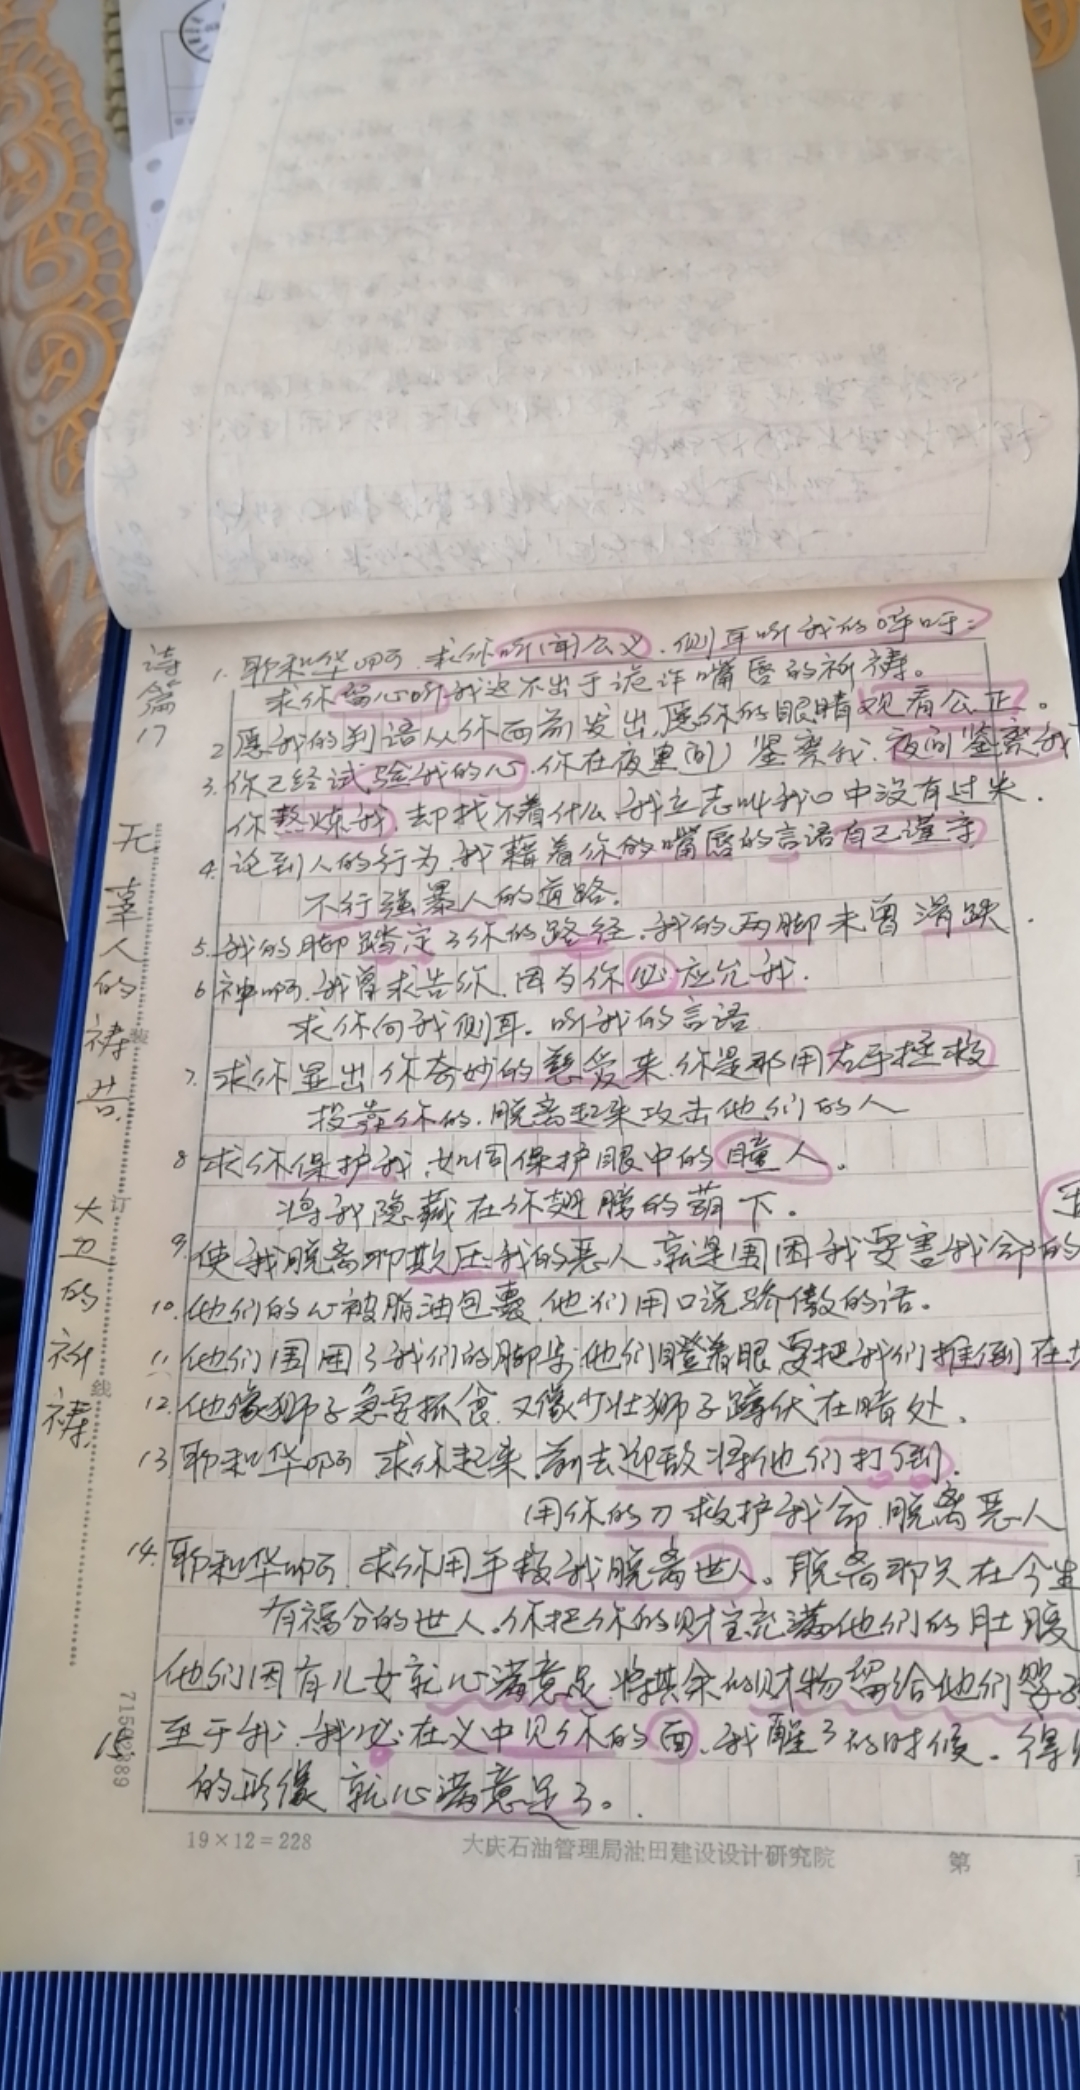 诗篇17
无辜人的祷告
大卫的祈祷
装
订
线
1. 耶和华啊,求你听闻公义,侧耳听我的呼吁:
求你留心听我这不出于诡诈嘴唇的祈祷。
2 愿我的判语从你面前发出,愿你的眼睛观看公正。
3. 你已经试验我的心,你在夜里(间)鉴察我,夜间鉴察我
你熬炼我,却找不着什么,我立志叫我口中没有过失.
4. 论到人的行为,我藉着你的嘴唇的言语自己谨守
不行强暴人的道路.
5. 我的脚踏定了你的路径,我的两脚未曾滑跌.
6 神啊,我曾求告你,因为你必应允我.
求你向我侧耳,听我的言语
7. 求你显出你奇妙的慈爱来,你是那用右手拯救
投靠你的,脱离起来攻击他们的人
8 求你保护我,如同保护眼中的瞳人。
将我隐藏在你翅膀的荫下。
9. 使我脱离那欺压我的恶人,就是围困我要害我命的
10. 他们的心被脂油包裹,他们用口说骄傲的话。
11. 他们围困了我们的脚步,他们瞪着眼,要把我们推倒在
12. 他像狮子急要抓食,又像少壮狮子蹲伏在暗处.
13. 耶和华啊 求你起来,前去迎敌,将他们打倒.
用你的刀救护我命,脱离恶人
14. 耶和华啊,求你用手救我脱离世人。脱离那只在今生
有福分的世人.你把你的财宝充满他们的肚腹
他们因有儿女就心满意足,将其余的财物留给他们婴孩
15 至于我,我必在义中见你的面,我醒了的时候。得见
的形像 就心满意足了。
7150289
19×12=228 大庆石油管理局油田建设设计研究院 第